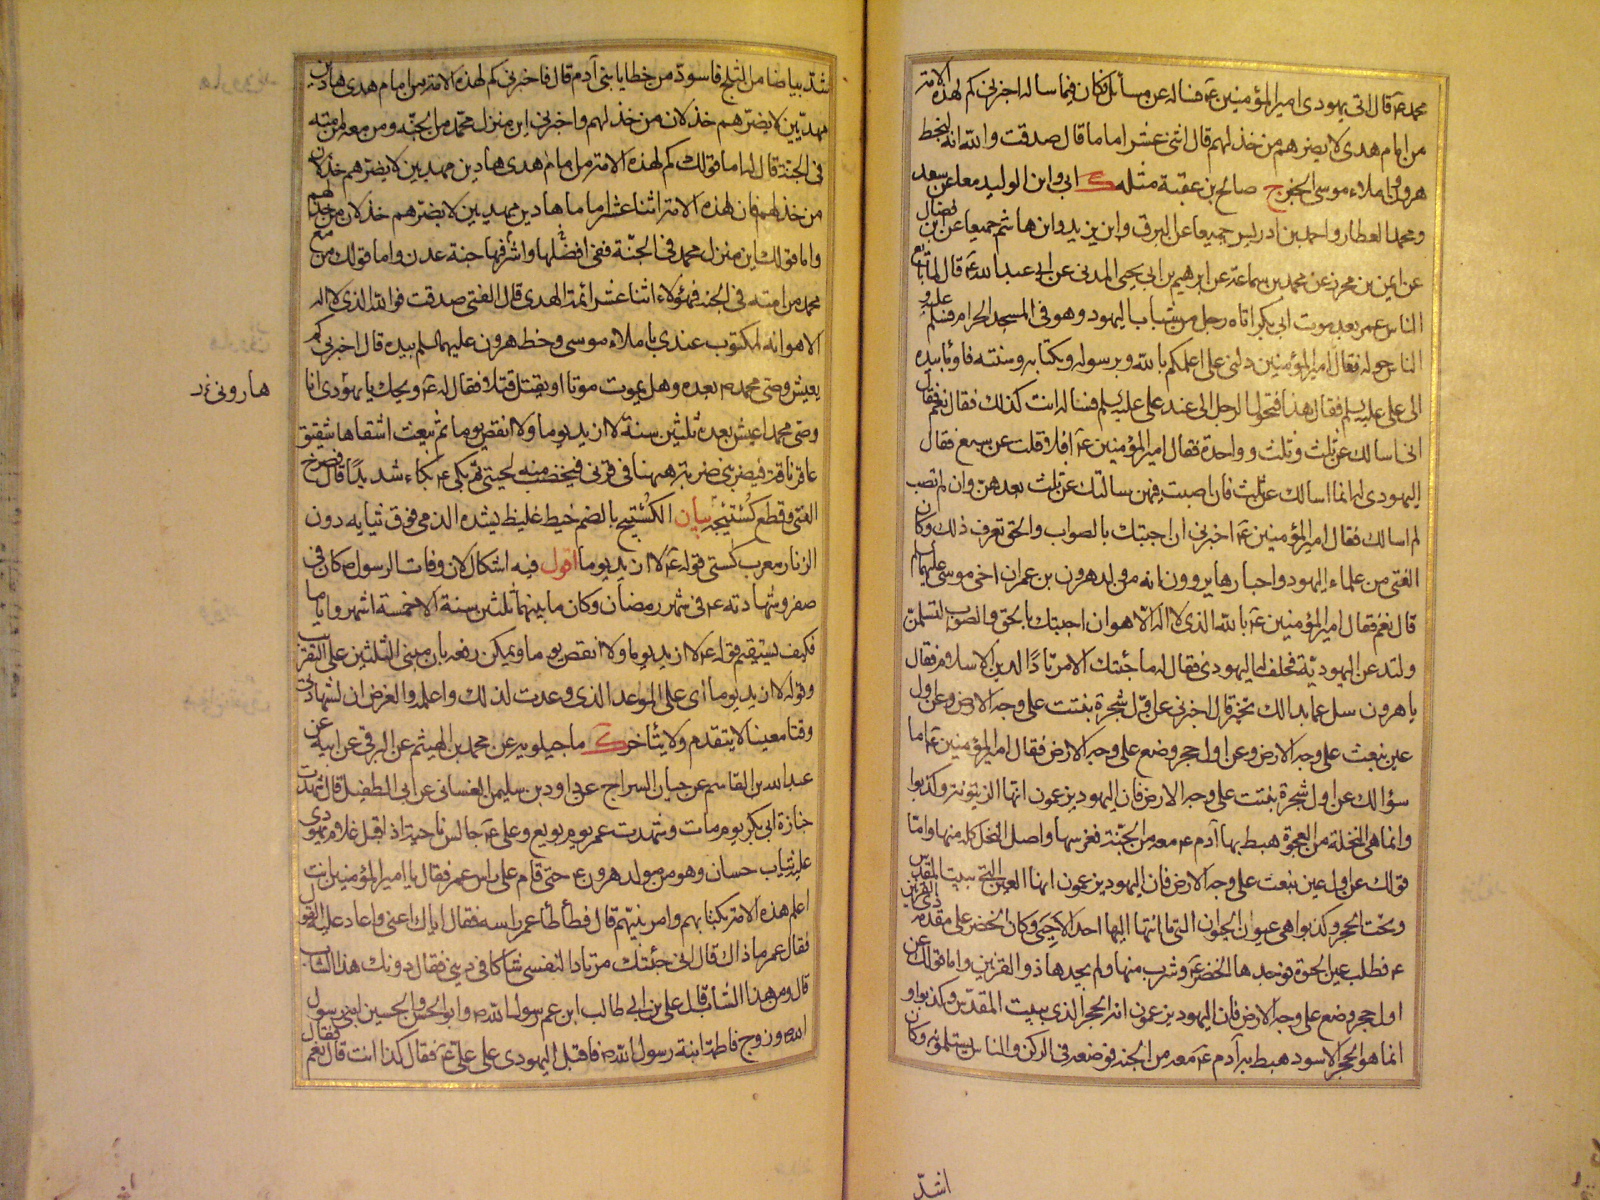 محمد ع قال اتى يهودى امير المؤمنين ع فساله عن مسائل فكان فيما ساله اخبرنى كم لهذه الامة
من امام هدى لا يضرهم من خذلهم قال اثنى عشر اماما قال صدقت والله انه لبخط
هرون واملاء موسى الخبر ج صالح بن عقبة مثله ك ابى وابن الوليد معا عن سعد
ومحمد العطار واحمد بن ادريس جميعا عن البرقى وابن يزيد وابن هاشم جميعا عن ابن فضال
عن ايمن بن محرز عن محمد بن سماعة عن ابرهيم بن ابى يحيى المدنى عن ابى عبد الله ع قال لما بايع
الناس عمر بعد موت ابى بكر اتاه رجل من شباب اليهود وهو فى المسجد الحرام فسلم عليه و
الناس حوله فقال يا امير المؤمنين دلنى على اعلمكم بالله وبرسوله وبكتابه وسنته فاومأ بيده
الى على عليه السلم فقال هذا فتحول الرجل الى عند على عليه السلم فساله انت كذلك فقال نعم فقال
انى اسالك عن ثلث وثلث وواحدة فقال امير المؤمنين ع افلا قلت عن سبع فقال
اليهودى لا انما اسالك عن ثلث فان اصبت فيهن سالتك عن ثلث بعدهن وان لم تصب
لم اسالك فقال امير المؤمنين ع اخبرنى ان اجبتك بالصواب والحق تعرف ذلك وكان
الفتى من علماء اليهود واحبارها يروون انه من ولد هرون بن عمران اخى موسى عليهما السلم
قال نعم فقال امير المؤمنين ع بالله الذى لا اله الا هو ان اجبتك بالحق والصواب لتسلمن
ولتدعن اليهودية فحلف له اليهودى فقال له ما جئتك الا مرتادا لدين الاسلام فقال
يا هرون سل عما بدا لك تخبر قال اخبرنى عن اول شجرة نبتت على وجه الارض وعن اول
عين نبعت على وجه الارض وعن اول حجر وضع على وجه الارض فقال امير المؤمنين ع اما
سؤالك عن اول شجرة نبتت على وجه الارض فان اليهود يزعمون انها الزيتونة وكذبوا
وانما هى النخلة من العجوة هبط بها آدم ع معه من الجنة فغرسها واصل النخل كله منها واما
قولك عن اول عين نبعت على وجه الارض فان اليهود يزعمون انها العين التى ببيت المقدس
وتحت الحجر وكذبوا هى عين الحيوان التى ما انتهى اليها احد الا حيى وكان الخضر على مقدمة ذى القرنين
ع فطلب عين الحيوة فوجدها الخضر ع وشرب منها ولم يجدها ذو القرنين واما قولك عن
اول حجر وضع على وجه الارض فان اليهود يزعمون انه الحجر الذى ببيت المقدس وكذبوا و
انما هو الحجر الاسود هبط به آدم ع معه من الجنة فوضعه فى الركن والناس يستلمونه وكان
اشد
اشد بياضا من الثلج فاسود من خطايا بنى آدم قال فاخبرنى كم لهذه الامة من امام هدى هادين
مهديين لا يضرهم خذلان من خذلهم واخبرنى اين منزل محمد من الجنة ومن معه من امته
فى الجنة قال له اما قولك كم لهذه الامة من امام هدى هادين مهديين لا يضرهم خذلان
من خذلهم فان لهذه الامة اثنا عشر اماما هادين مهديين لا يضرهم خذلان من خذلهم
واما قولك اين منزل محمد فى الجنة ففى افضلها واشرفها جنة عدن واما قولك من مع
محمد من امته فى الجنة فهؤلاء اثنا عشر ائمة الهدى قال الفتى صدقت فوالله الذى لا اله
الا هو انه لمكتوب عندى باملاء موسى وخط هرون عليهما السلم بيده قال اخبرنى كم
يعيش وصى محمد ص بعده وهل يموت موتا او يقتل قتلا فقال له ع ويحك يا يهودى انا
وصى محمد اعيش بعده ثلثين سنة لا ازيد يوما ولا انقص يوما ثم يبعث اشقاها شقيق
عاقر ناقة فيضربنى ضربة ههنا فى قرنى فيخضب منه لحيتى ثم بكى ع بكاء شديدا قال فصرخ
الفتى وقطع كستيجه بيان الكستيج بالضم خيط غليظ يشده الذمى فوق ثيابه دون
الزنار معرب كستى قوله ع لا ازيد يوما اقول فيه اشكال لان وفات الرسول ص كان فى
صفر وشهادته ع فى شهر رمضان وكان ما بينهما ثلثين سنة الا خمسة اشهر واياما
فكيف يستقيم قوله ع لا ازيد يوما ولا انقص يوما ويمكن دفعه بان مبنى الثلثين على التقريب
وقوله لا ازيد يوما اى على الموعد الذى وعدت لذلك واعلمه والغرض ان لشهادتى
وقتا معينا لا يتقدم ولا يتأخر ك ماجيلويه عن محمد بن الهيثم عن البرقى عن ابيه عن
عبد الله بن القاسم عن حيان السراج عن داود بن سليمن الغسانى عن ابى الطفيل قال شهدت
جنازة ابى بكر يوم مات وشهدت عمر يوم بويع وعلى ع جالس ناحية اذ اقبل غلام يهودى
عليه ثياب حسان وهو من ولد هرون ع حتى قام على راس عمر فقال يا امير المؤمنين انت
اعلم هذه الامة بكتابهم وامر نبيهم قال فطأطأ عمر راسه فقال اياك اعنى واعاد عليه القول
فقال عمر ما ذاك قال انى جئتك مرتادا لنفسى شاكا فى دينى فقال دونك هذا الشاب
قال ومن هذا الشاب قال على بن ابى طالب ابن عم رسول الله ص وابو الحسن والحسين ابنى رسول
الله ص وزوج فاطمة ابنة رسول الله ص فاقبل اليهودى على على ع فقال كذا انت قال نعم فقال
هارونى